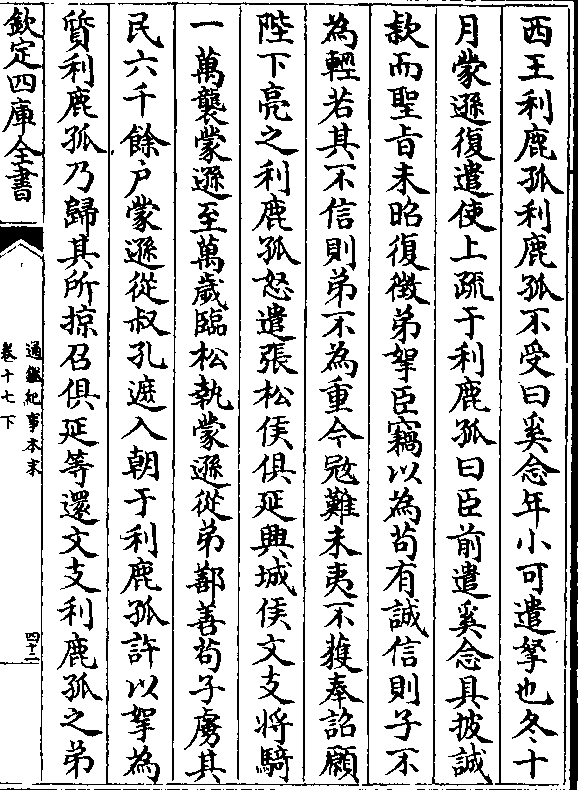 西王利鹿孤利鹿孤不受曰奚念年小可遣挐也冬十
月蒙遜復遣使上疏于利鹿孤曰臣前遣奚念具披誠
款而聖旨未昭復徵弟挐臣竊以為苟有誠信則子不
為輕若其不信則弟不為重今寇難未夷不獲奉詔願
陛下亮之利鹿孤怒遣張松侯俱延興城侯文支将騎
一萬襲蒙遜至萬歲臨松執蒙遜從弟鄯善苟子虜其
民六千餘戶蒙遜從叔孔遮入朝于利鹿孤許以挐為
質利鹿孤乃歸其所掠召俱延等還文支利鹿孤之弟
欽定四庫全書
通鑑紀事本末
卷十七下
四十二